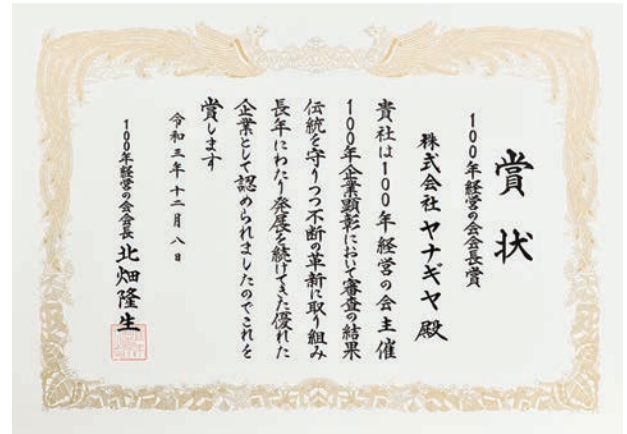 賞状
100年経営の会会長賞
株式会社ヤナギヤ殿
貴社は100年経営の会主催
100年企業顕彰において審査の結果
伝統を守りつつ不断の革新に取り組み
長年にわたり発展を続けてきた優れた
企業として認められましたのでこれを
賞します
令和三年十二月八日
100年経営の会会長 北畑隆生